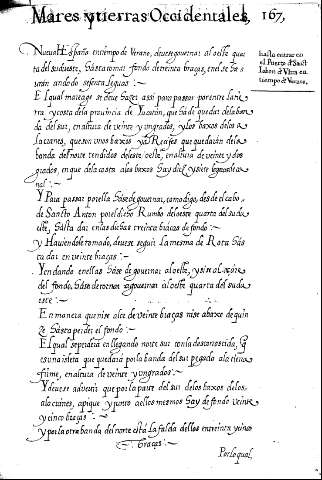 Mares y tierras Occidentales, 167,
Nueva España en tiempo de Verano, deuese gouernar al oeste quarta
ta del sudueste, hasta tomar fondo de treinta braças, en el se ha
uran andado sesenta leguas:
El qual se ha de hazer assi para passar por entre la
y costa de la prouincia de Yucatan, que ha de quedar de la ban
da del sur, en altura de veinte y un grados, y los baxos de los a
lacranes, que son unos baxos y Reçifes que quedaran de la
banda del norte tendidos del este oeste, en altura de veinte y dos
grados, en que de la costa a los baxos hay diez y siete leguas
nal:
Y Para passar por ella hase de gouernar, como digo, desde el cabo
de Sancto Anton por el dicho Rumbo del oeste quarta del sudu
este, hasta dar en las dichas treinta braças de fondo:
y Hauiendole tomado, deuese seguir la mesma de Rota has
ta dar en veinte braças:
Yendando en ellas hase de gouernar al oeste, y si se al
del fondo, hase de tornar a gouernar al oeste quarta del sudu
este:
En manera que ni se alce de veinte braças ni se abaxe de quin
ze hasta perder el fondo:
El qual se perderá en llegando norte sur con la desconoscida, q̃
es una isleta que quedara por la banda del sur pegada a la tierra
firme, en altura de veinte y un grados:
Y deuese aduertir que por la parte del sur de los baxos de los
alacranes, a pique y junto a ellos mesmos hay de fondo veinte
y cinco braças:
y por la otra banda del norte esta la falda dellos en treinta y cinco
braças:
Por lo qual
hasta entrar en
el Puerto de Sanct
Iohan de Ulua en
tiempo de Verano,